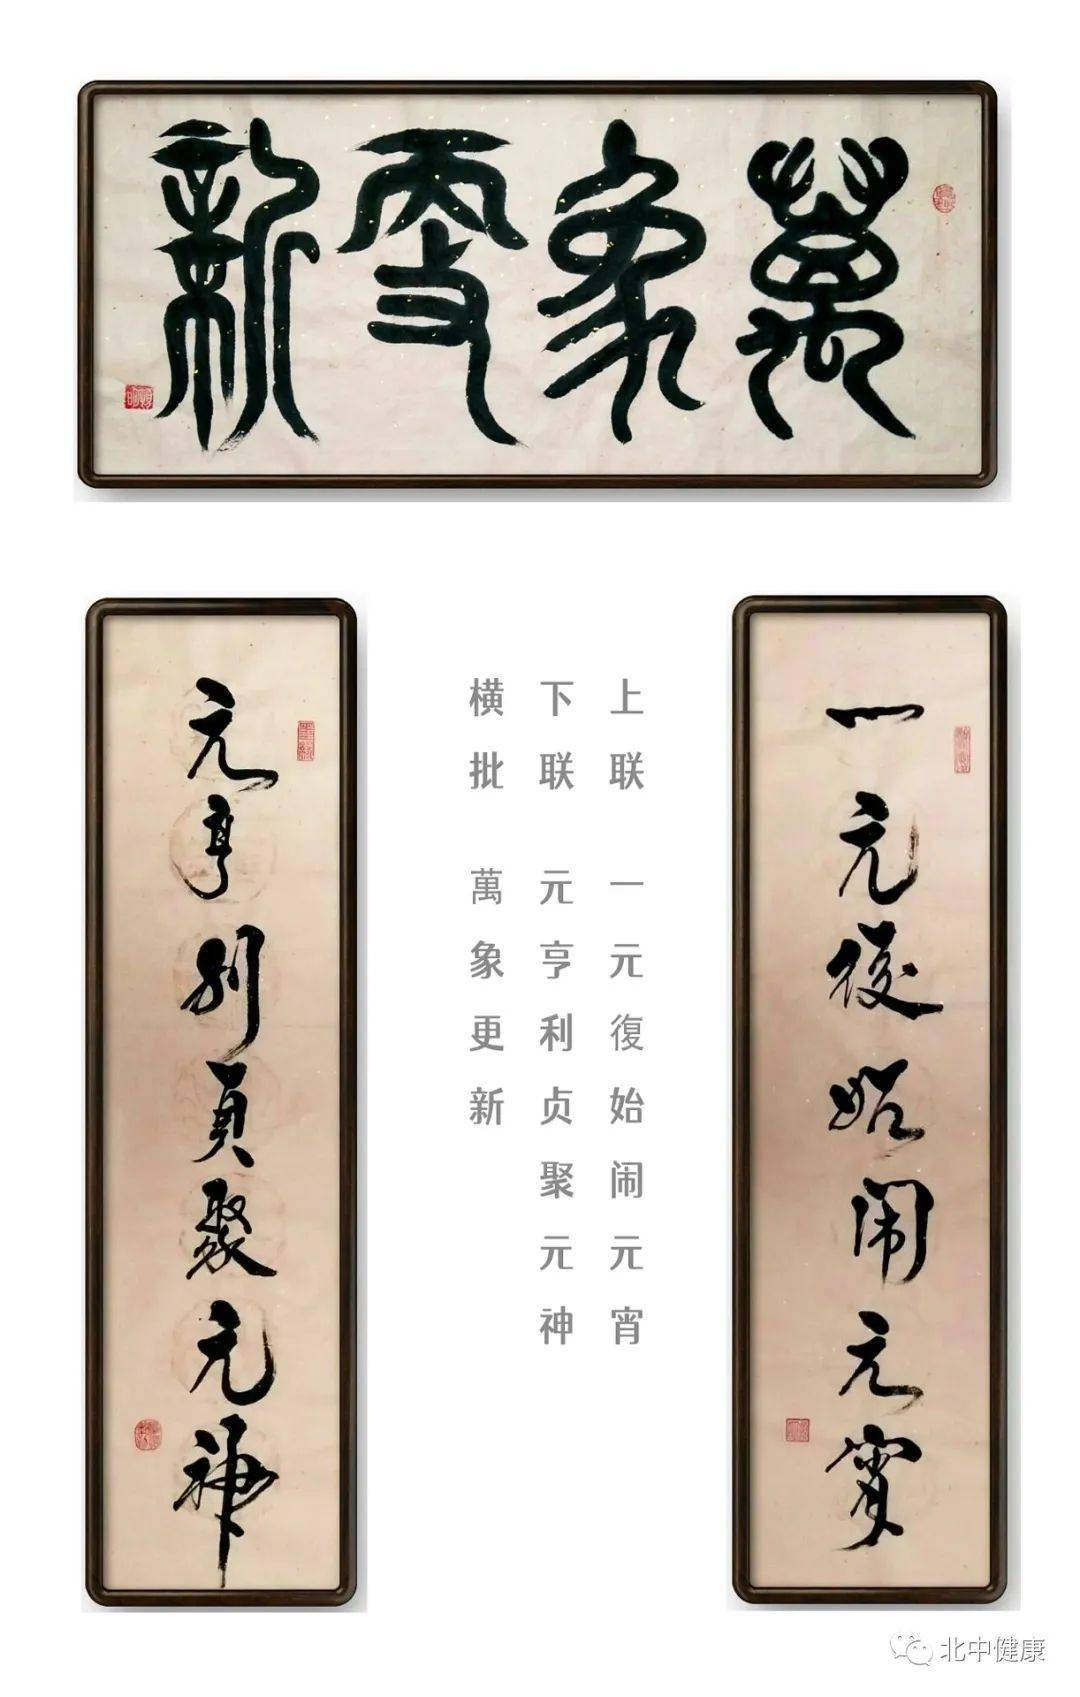 萬象更新
一元復始闹元宵
元亨利贞聚元神
上联 一元復始闹元宵
下联 元亨利贞聚元神
横批 萬象更新
北中健康